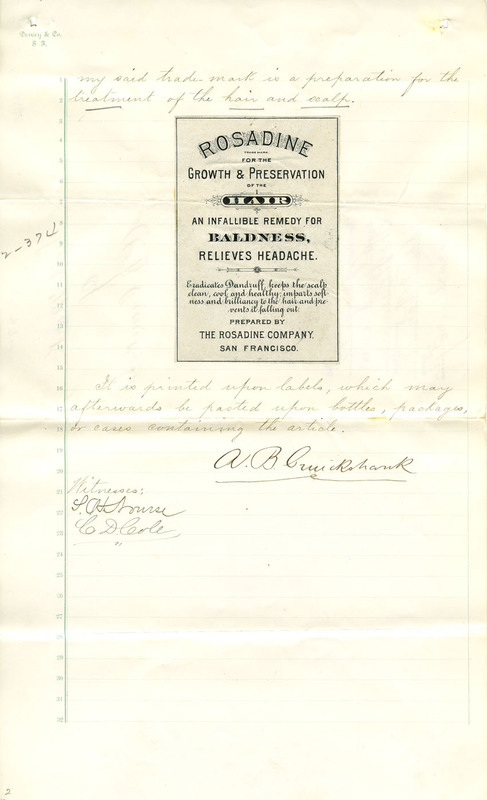 Dewey & Co.
S. F.
1 my said trade-mark is a preparation for the
2 treatment of the hair and scalp.
3
4
5
6
7
8
9
10
11
12
13
14
15
2-374
ROSADINE
TRADE MARK
FOR THE
GROWTH & PRESERVATION
OF THE
HAIR
AN INFALLIBLE REMEDY FOR
BALDNESS,
RELIEVES HEADACHE.
Eradicates Dandruff, keeps the scalp
clean, cool and healthy; imparts soft-
ness and brilliancy to the hair and pre-
vents it falling out.
PREPARED BY
THE ROSADINE COMPANY.
SAN FRANCISCO.
16 It is printed upon labels, which may
17 afterwards be pasted upon bottles, packages,
18 or cases containing the article.
19
20 A. B. Cruickshank
21 Witnesses:
22 S. H. Nourse
23 C. D. Cole
24
25
26
27
28
29
30
31
32
2